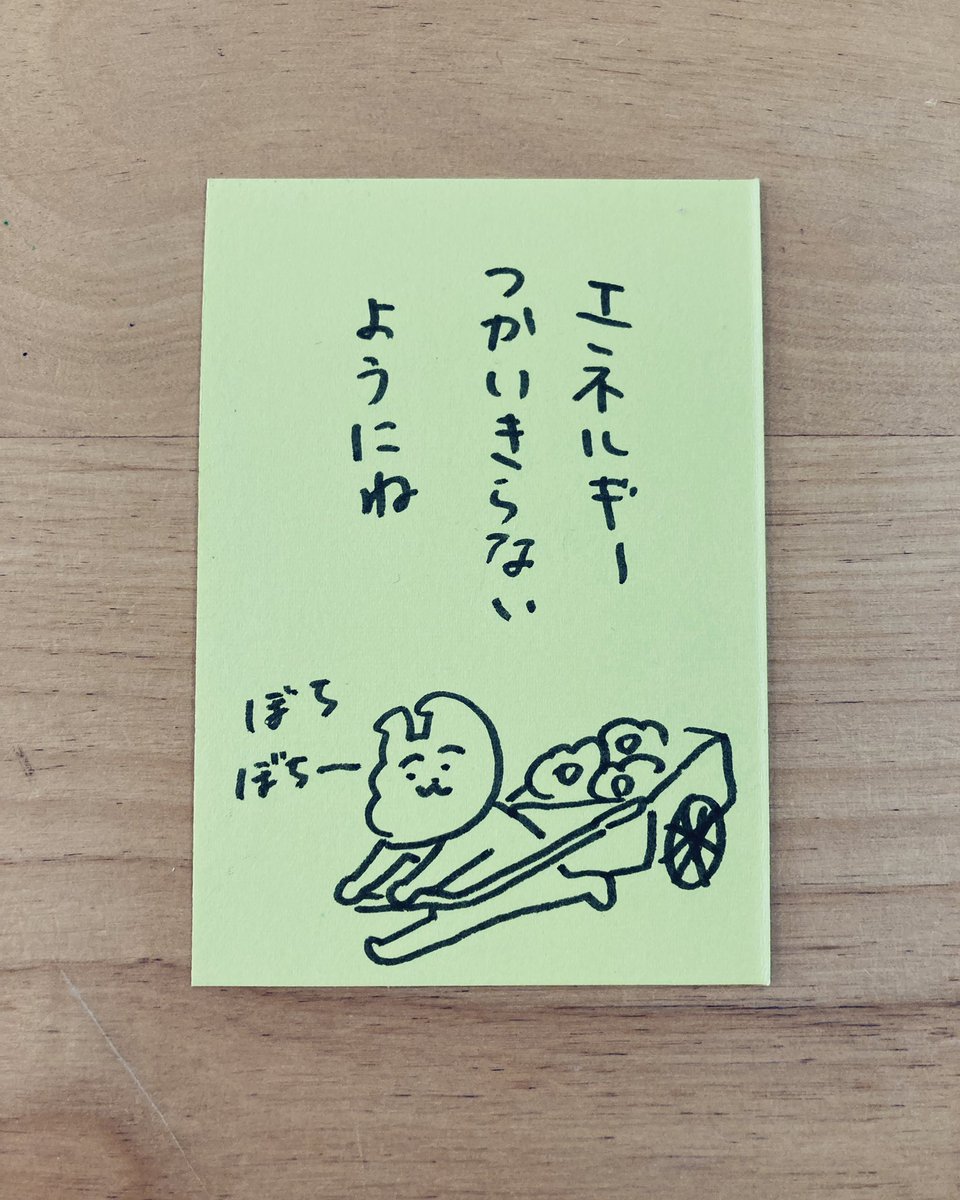 エネルギー
つかいきらない
ようにね
ぼち
ぼちー